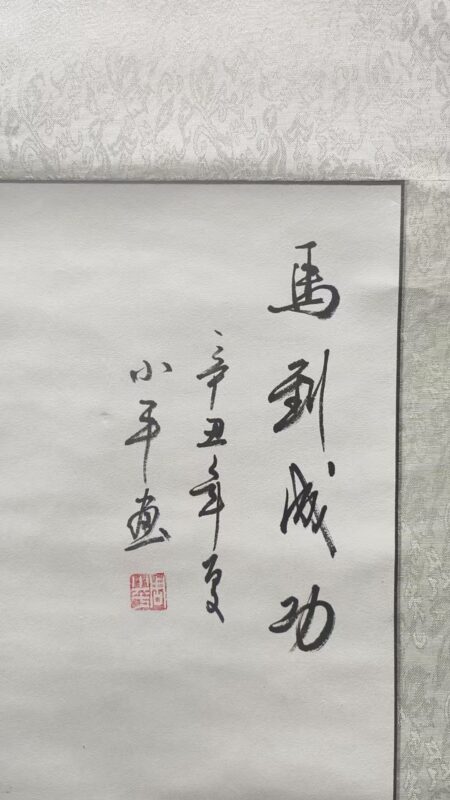 馬到成功
辛丑年夏
小平画